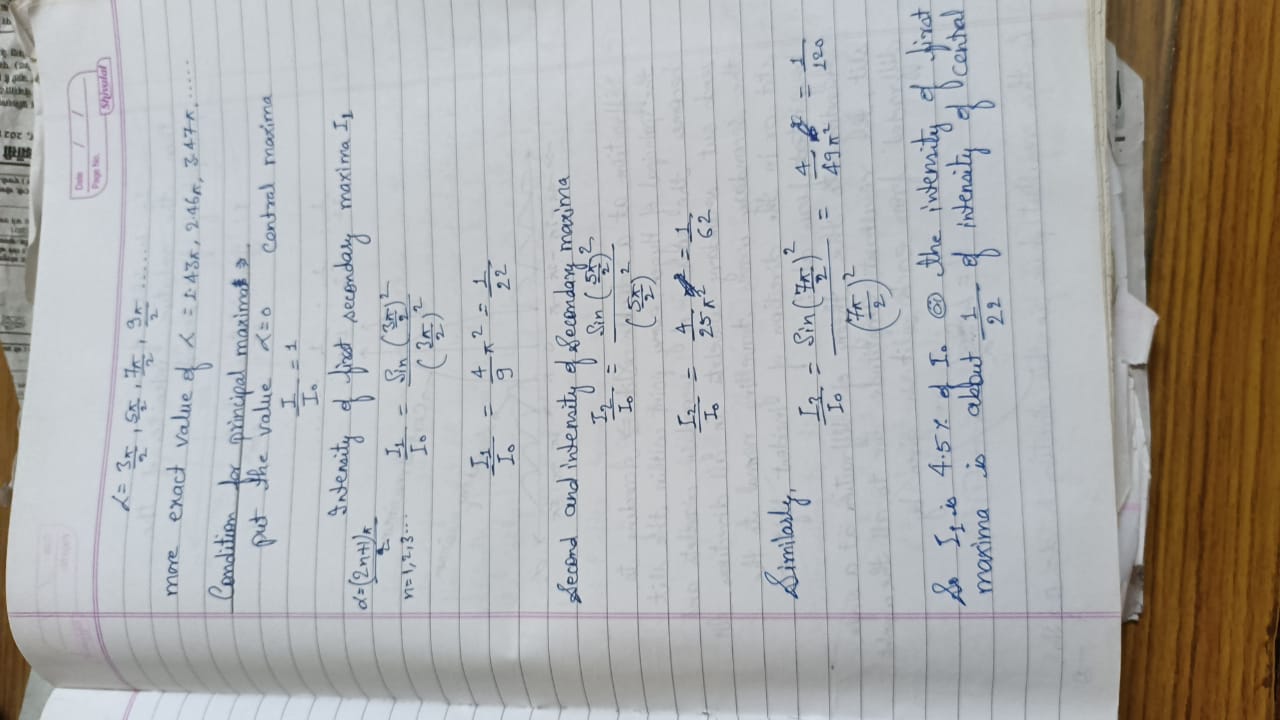 Date / /
Page No.
Shivalal
α = 3π/2, 5π/2, 7π/2, 9π/2 ........
more exact value of α = 1.43π, 2.46π, 3.47π, ......
Condition for principal maxima →
put the value α=0 central maxima
I/I₀ = 1
Intensity of first secondary maxima I₁
α=(2n+1)π/2
n=1,2,3...
I₁/I₀ = Sin(3π/2)²/(3π/2)²
I₁/I₀ = 4/9 π² = 1/22
Second and intensity of Secondary maxima
I₂/I₀ = Sin(5π/2)²/(5π/2)²
I₂/I₀ = 4/25π² = 1/62
Similarly,
I₃/I₀ = Sin(7π/2)²/(7π/2)² = 4/49π² = 1/120
So I₁ is 4.5% of I₀ the intensity of first
maxima is about 1/22 of intensity of central